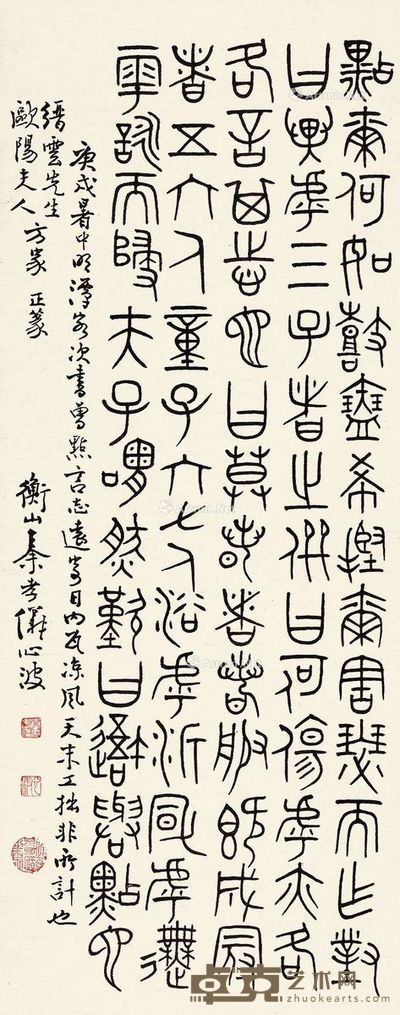 點爾何如鼓瑟希鏗爾舍瑟而作對
曰異乎三子者之撰曰何傷乎亦各
各言其志也曰莫春者春服既成冠
者五六人童子六七人浴乎沂風乎舞
雩詠而歸夫子喟然歎曰吾與點也
庚戌暑中明潭客次書曾點言志遠寄日內瓦涼風天末工拙非所計也
縉雲先生
歐陽夫人方家 正篆
衡山秦孝儀心波
卓克艺术网
zhuokearts.com